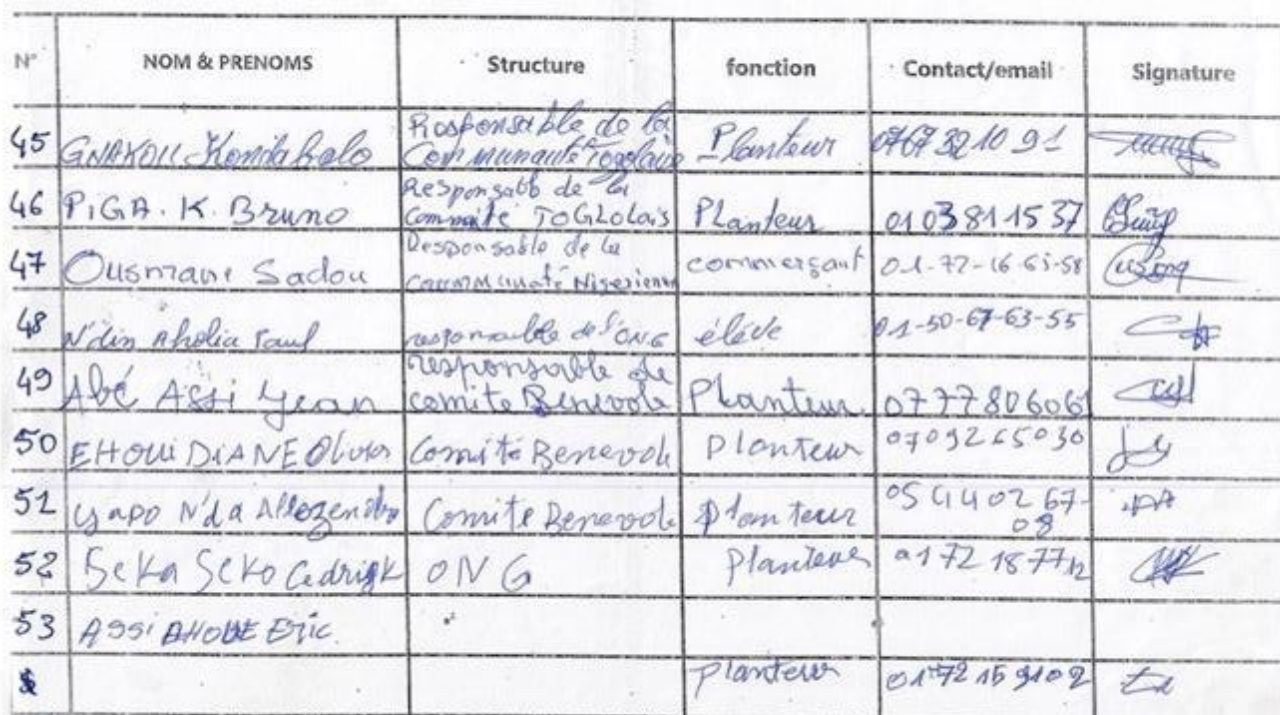 N° NOM & PRENOMS Structure fonction Contact/email Signature
45 GNAKOU Kondi balo Responsable de la Communauté Togolaise Planteur 0767321091
46 PiGA. K. Bruno Responsabb de la Commaite TOGLOlais Planteur 0103811537
47 Ousmane Sadou Responsable de la Communauté Nigerienne commerçant 01-72-16-65-58
48 N'din Aholia Paul responsable de l'ONG éléve 01-50-67-63-55
49 Abé Assi Jean responsable de comite Benevole Planteur 0777806061
50 EHOUi DiANE Olivier Comité Benevole Planteur 0709265030
51 yapo N'da Comite Benevole Planteur 05 44 02 67-08
52 Seka Seko Cedrick ONG Planteur 01 72 18 77 12
53 ASSi AHOUE Eric.
Planteur 01 72 15 9102